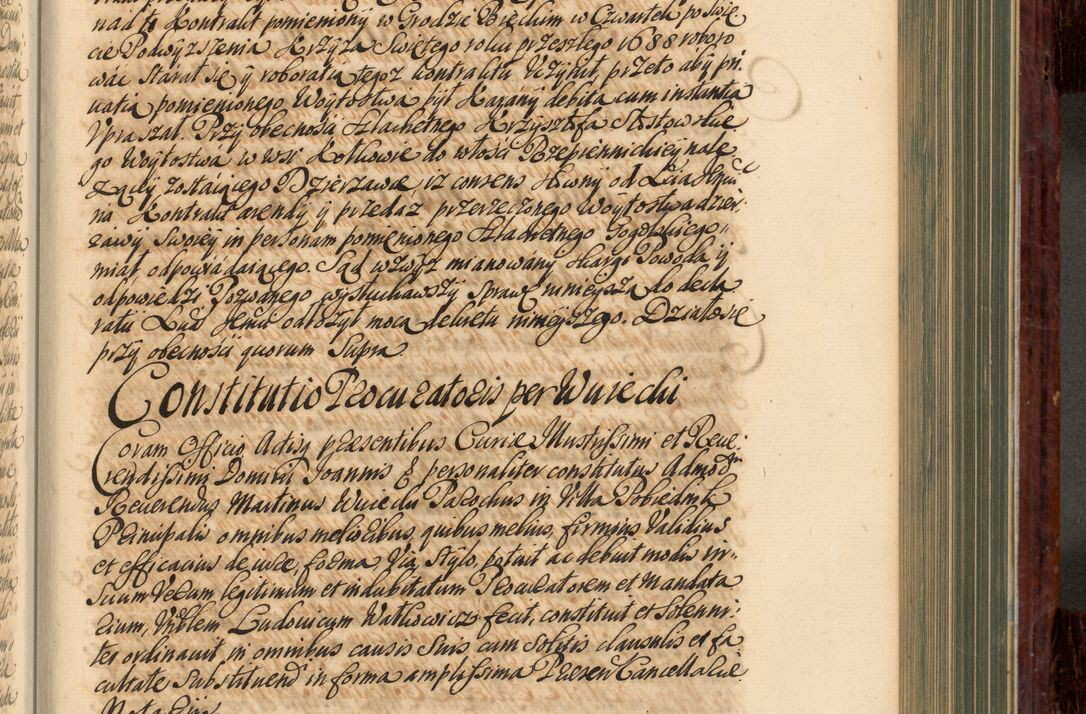 nad to Kontrakt pomieniony w Grodzie Bieckim w Czwartek po Swię
cie Podwyzszenia Krzyza Swiętego roku przeszłego 1688 roboro
wac starał się y roboratią tegoz kontraktu Uczynił, przeto aby pri
uatia pomienionego Woytostwa był Karany debita cum instantia
Upraszał. Przy obecnosci Szlachetnego Krzysztofa
go Woytostwa w wsi Kotkowie do włosci Rzepiennickiey nale
zącey zostaiącego Dzierzawcę iz consens
na Kontrakt arendy y przedaz przerzeczonego Woytostwa dzier
zawy swoiey in personam pomienionego Szlachetnego Gogolskiego
miał odpowiadaiącego. Sąd wzwyz mianowany Skargi Powoda y
odpowiedzi Pozwanego wysłuchawszy sprawę ninieyszą do decla
ratii odłozył mocą dekretu ninieyszego. Działo się
przy obecnosci quorum supra
Constitutio Procuratoris per Wuiecki
Coram Officio Actisq praesentibus Curiae Illustrissimi et Reue
rendissimi Domini Joannis & personaliter constitutus Admod
Reuerendus Martinus Wuiecki Parochus in Villa Pobiednik
Principalis omnibus melioribus, quibus melius, firmius Validius
et efficacius de iure, forma, Via, Stylo, potuit ac debuit modis in
suum Verum legitimum et indubitatum Procuratorem et Mandata
rium, Nblem Ludouicum Watkowicz fecit, constituit et Solenni
ter ordinauit in omnibus causis suis cum solitis clausulis et fa
cultate Substituend in forma amplissima Praesen Cancellariae